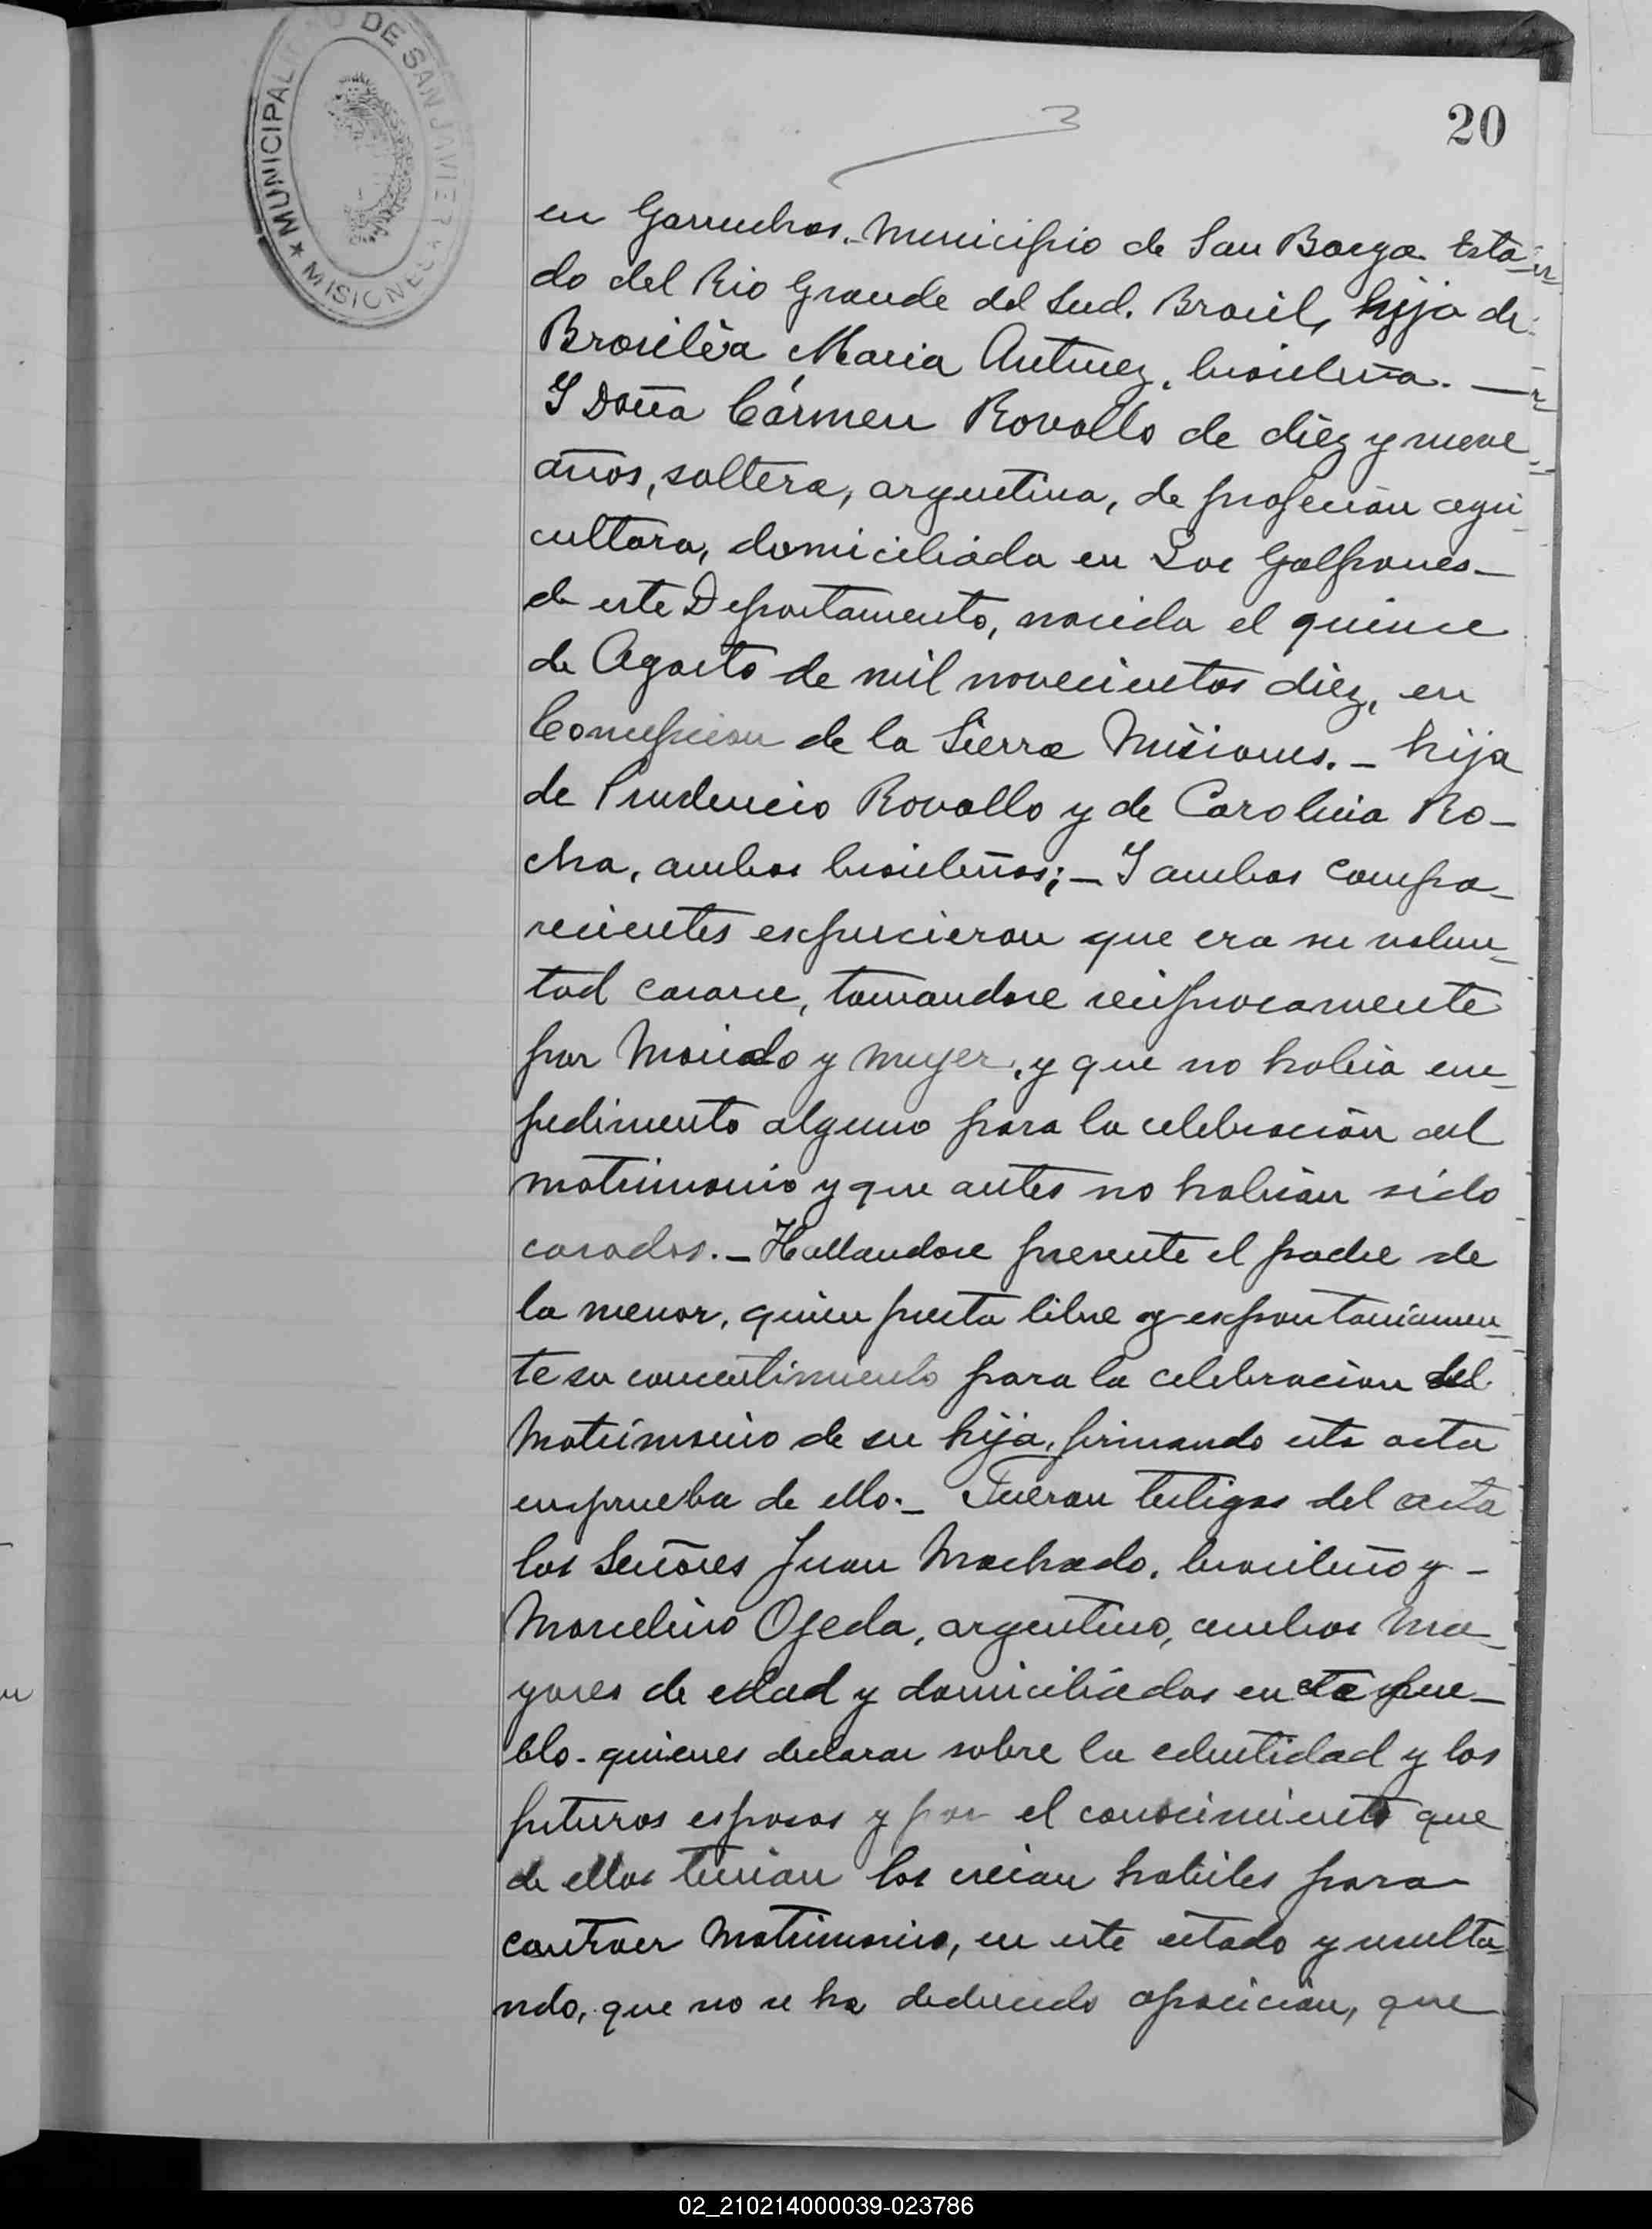 MUNICIPALIDAD DE SAN JAVIER
★ MISIONES ★
3
20
en Garruchos. Municipio de San Borga. Esta-
do del Rio Grande del Sud. Brasil, hija de
Brasiléra Maria Antunez, brasileña. —
Y Doña Cármen Rovallo de diéz y nueve
años, soltera, argentina, de profeción agri-
cultora, domiciliáda en Los Galpones—
de este Departamento, nacida el quince
de Agosto de mil novecientos diéz, en
Concepcion de la Sierra Misiones. — hija
de Prudencio Rovallo y de Carolina Ro-
cha, ambos brasileños; — Y ambos compa-
recientes expucieron que era su volun-
tad casarse, tomandose reciprocamente
por Marido y Mujer, y que no había em-
pedimento alguno para la celebración del
matrimonio y que antes no habían sido
casados. — Hallandose presente el padre de
la menor, quien presta libre y expontaniamen-
te su concentimiento para la celebracion del
Matrimonio de su hija, firmando esta acta
en prueba de ello. — Fueron testigos del acta
los Señores Juan Machado, brasileño y —
Marcelino Ojeda, argentino, ambos Ma-
yores de edad y domiciliádos en este pue-
blo. quienes declaran sobre la edentidad y los
futuros esposos y por el conocimiento que
de ellos tenian los creian habiles para
contraer Matrimonio, en este estado y resulta-
ndo, que no se ha deducido oposición, que
02_210214000039-023786